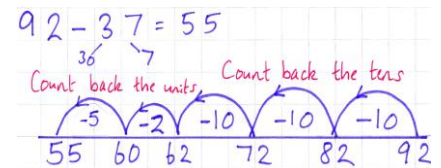 92-37=55
30 7
Count back the units Count back the tens
-5 -2 -10 -10 -10
55 60 62 72 82 92